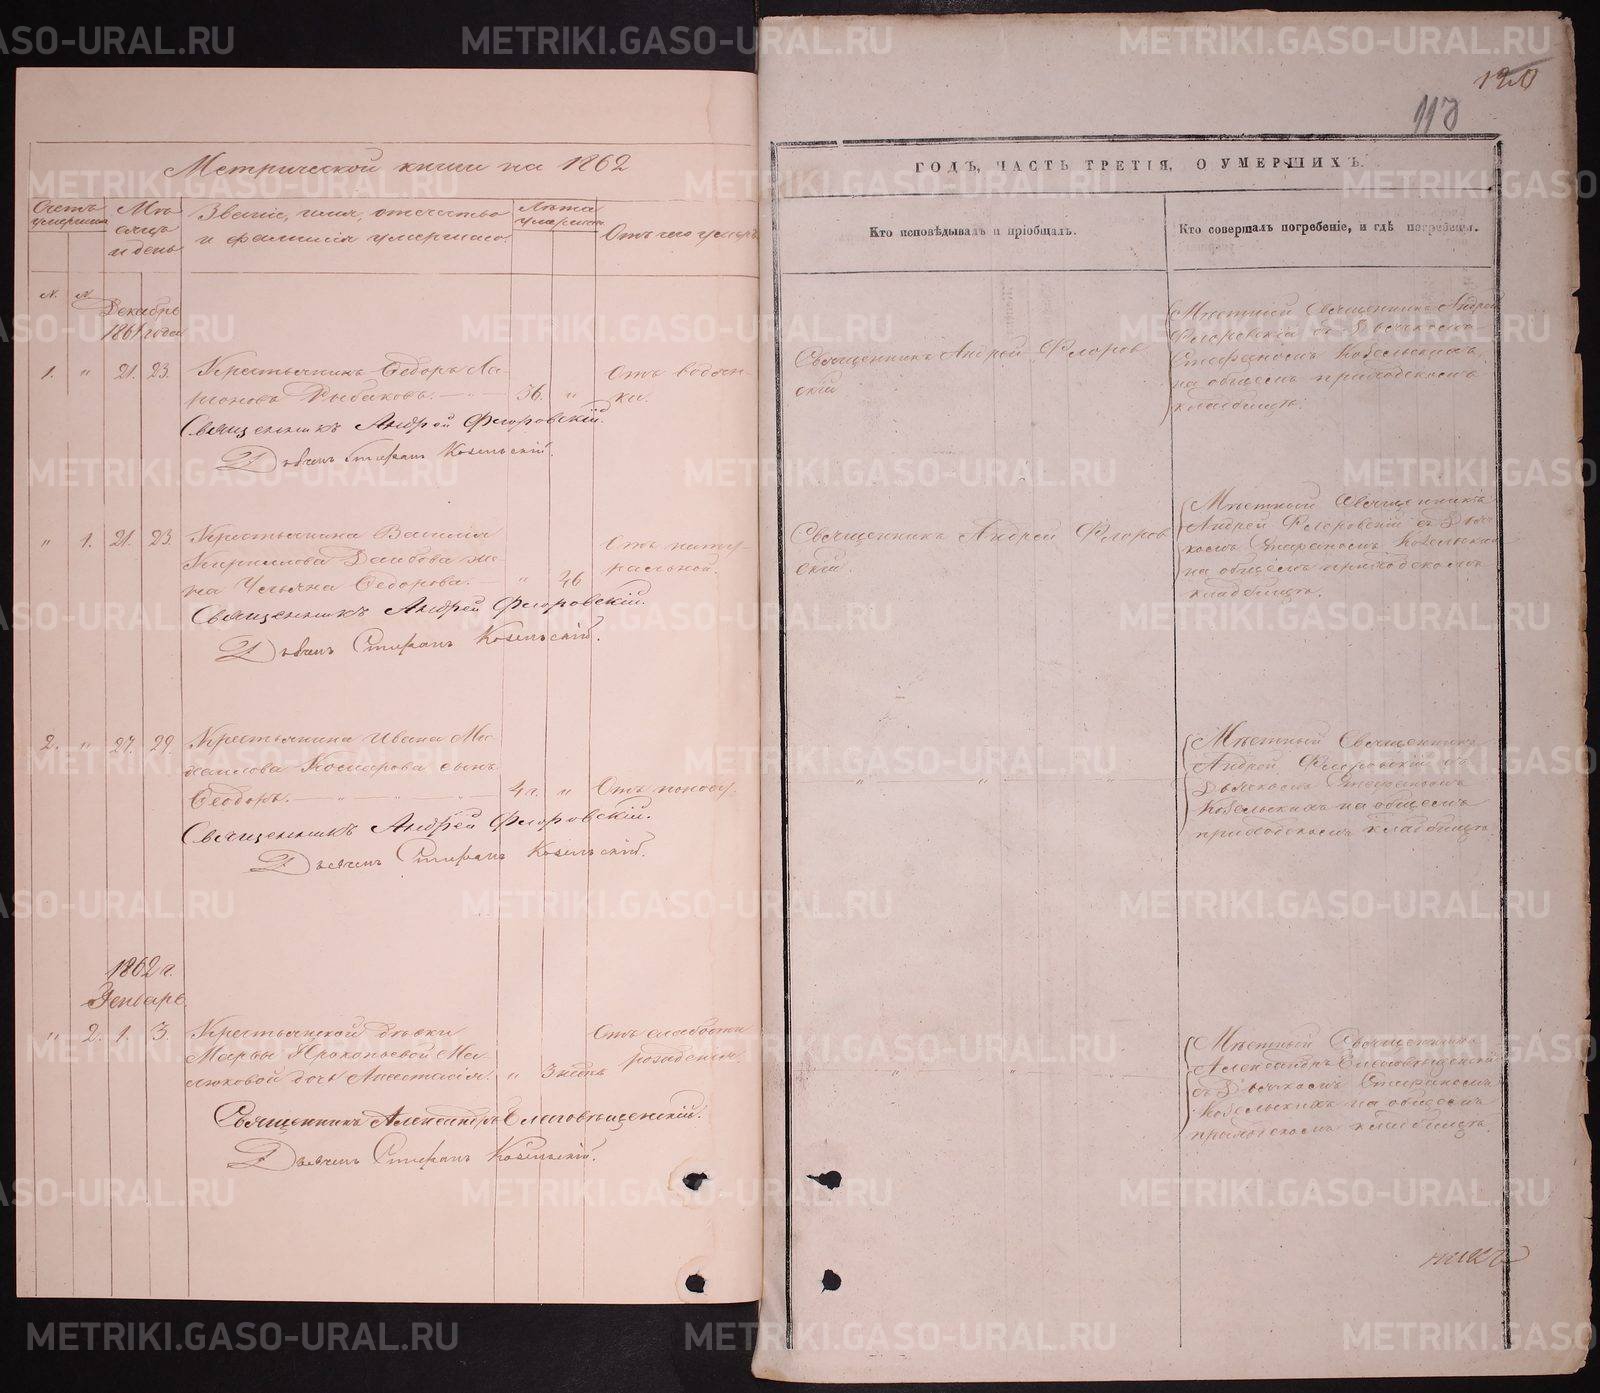 Метрической книги на 1862
Счетъ умершихъ
Мѣсяцъ и день
Званіе, имя, отчество и фамилія умершаго.
Лѣта умершихъ
Отъ чего умеръ
N. N.
Декабрь
1861 года
1. " 21. 23. Крестьянинъ Ѳедоръ Ла-
ріоновъ Рыбаковъ. — " — 56. "
Отъ водян-
ки.
Священникъ Андрей Флоровскій.
Дьячекъ Стефанъ Козельскій.
" 1. 21. 23. Крестьянина Василія
Кириллова же-
на Ульяна Ѳедорова. — " 46
Отъ нату-
ральной.
Священникъ Андрей Флоровскій.
Дьячекъ Стефанъ Козельскій.
2. " 27. 29. Крестьянина Ивана Ми-
хаилова Комарова сынъ
Ѳеодоръ. — " — " — " — 4 г. " Отъ поносу.
Священникъ Андрей Флоровскій.
Дьячекъ Стефанъ Козельскій.
1862 г.
Январь
" 2. 1. 3. Крестьянской дѣвки
Марѳы Прокопьевой
дочь Анастасія. " 3 недѣль
Отъ слабости
рожденія.
Священникъ Александръ Благовѣщенскій.
Дьячекъ Стефанъ Козельскій.
120
113
ГОДЪ, ЧАСТЬ ТРЕТІЯ, О УМЕРШИХЪ.
Кто исповѣдывалъ и пріобщалъ.
Кто совершалъ погребеніе, и гдѣ погребены.
Священникъ Андрей Флоров
скій
Мѣстный Священникъ Андрей
Флоровскій съ Дьячкомъ
Стефаномъ Козельскимъ,
на общемъ приходскомъ
кладбищѣ.
Священникъ Андрей Флоров
скій.
Мѣстный Священникъ
Андрей Флоровскій съ Дьяч
комъ Стефаномъ Козельским
на общемъ приходскомъ
кладбищѣ.
" " "
Мѣстный Священникъ
Андрей Флоровскій съ
Дьячкомъ Стефаномъ
Козельскимъ на общемъ
приходскомъ кладбищѣ.
" " "
Мѣстный Священникъ
Александръ Благовѣщенскій
съ Дьячкомъ Стефаномъ
Козельскимъ на общемъ
приходскомъ кладбищѣ.
METRIKI.GASO-URAL.RU